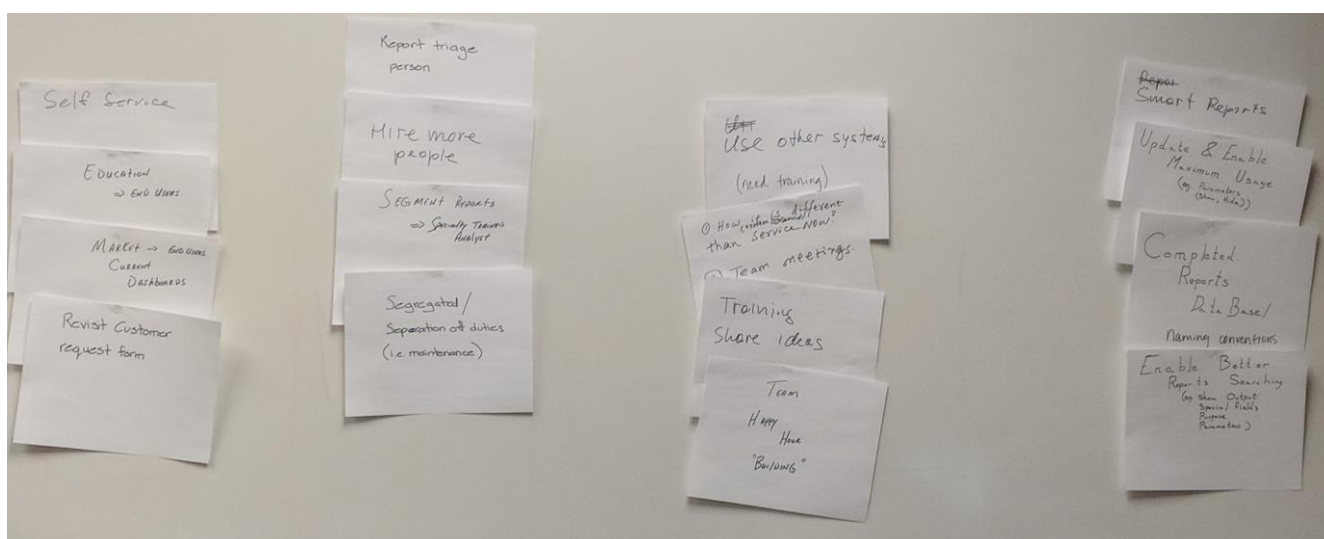 Self Service
EDUCATION
⇒ END USERS
MARKET → END USERS
CURRENT
DASHBOARDS
Revisit Customer
request form
Report triage
person
Hire more
people
SEGMENT REPORTS
⇒ Specialty Trained
Analyst
Segregated/
Separation of duties
(i.e. maintenance)
Use other systems
(need training)
① How different
than service now?
② Team meetings.
Training
Share ideas
TEAM
HAPPY
HOUR
"BUILDING"
Repor
Smart Reports
Update & Enable
Maximum Usage
(eg Parameters
(Show, Hide))
Completed
Reports
Data Base/
naming conventions
Enable Better
Reports Searching
(eg Show Output
Special Fields
Purpose
Parameters)